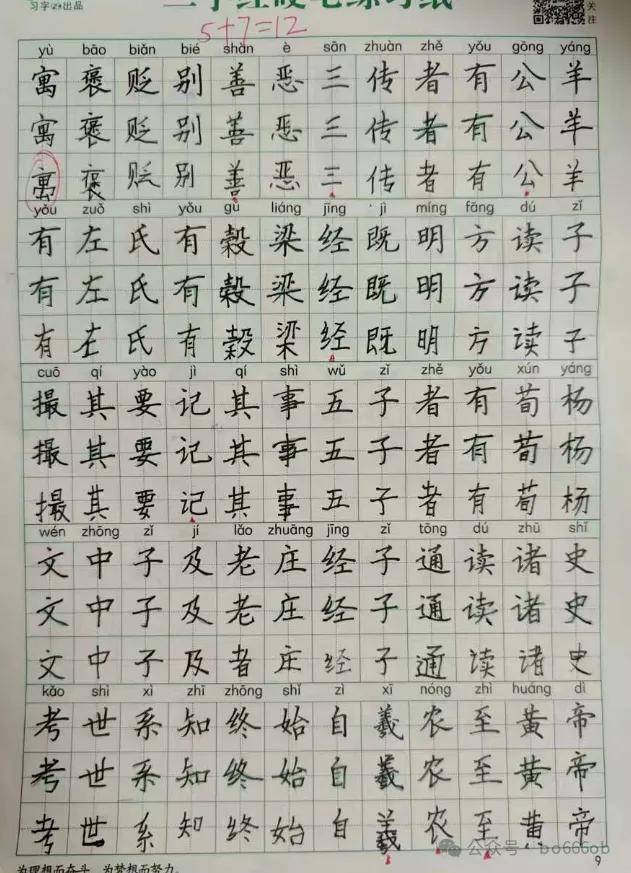 习字出品 三字经硬笔练习纸 关注
5+7=12
yù bāo biǎn bié shàn è sān zhuàn zhě yǒu gōng yáng
寓褒贬别善恶三传者有公羊
寓褒贬别善恶三传者有公羊
寓褒贬别善恶三传者有公羊
yǒu zuǒ shì yǒu gǔ liáng jīng jì míng fāng dú zǐ
有左氏有穀梁经既明方读子
有左氏有穀梁经既明方读子
有左氏有穀梁经既明方读子
cuō qí yào jì qí shì wǔ zǐ zhě yǒu xún yáng
撮其要记其事五子者有荀杨
撮其要记其事五子者有荀杨
撮其要记其事五子者有荀杨
wén zhōng zǐ jí lǎo zhuāng jīng zǐ tōng dú zhū shǐ
文中子及老庄经子通读诸史
文中子及老庄经子通读诸史
文中子及者庄经子通读诸史
kǎo shì xì zhī zhōng shǐ zì xī nóng zhì huáng dì
考世系知终始自羲农至黄帝
考世系知终始自羲农至黄帝
考世系知终始自羲农至黄帝
公众号 bo666ob
为理想而奋斗，为梦想而努力。 9